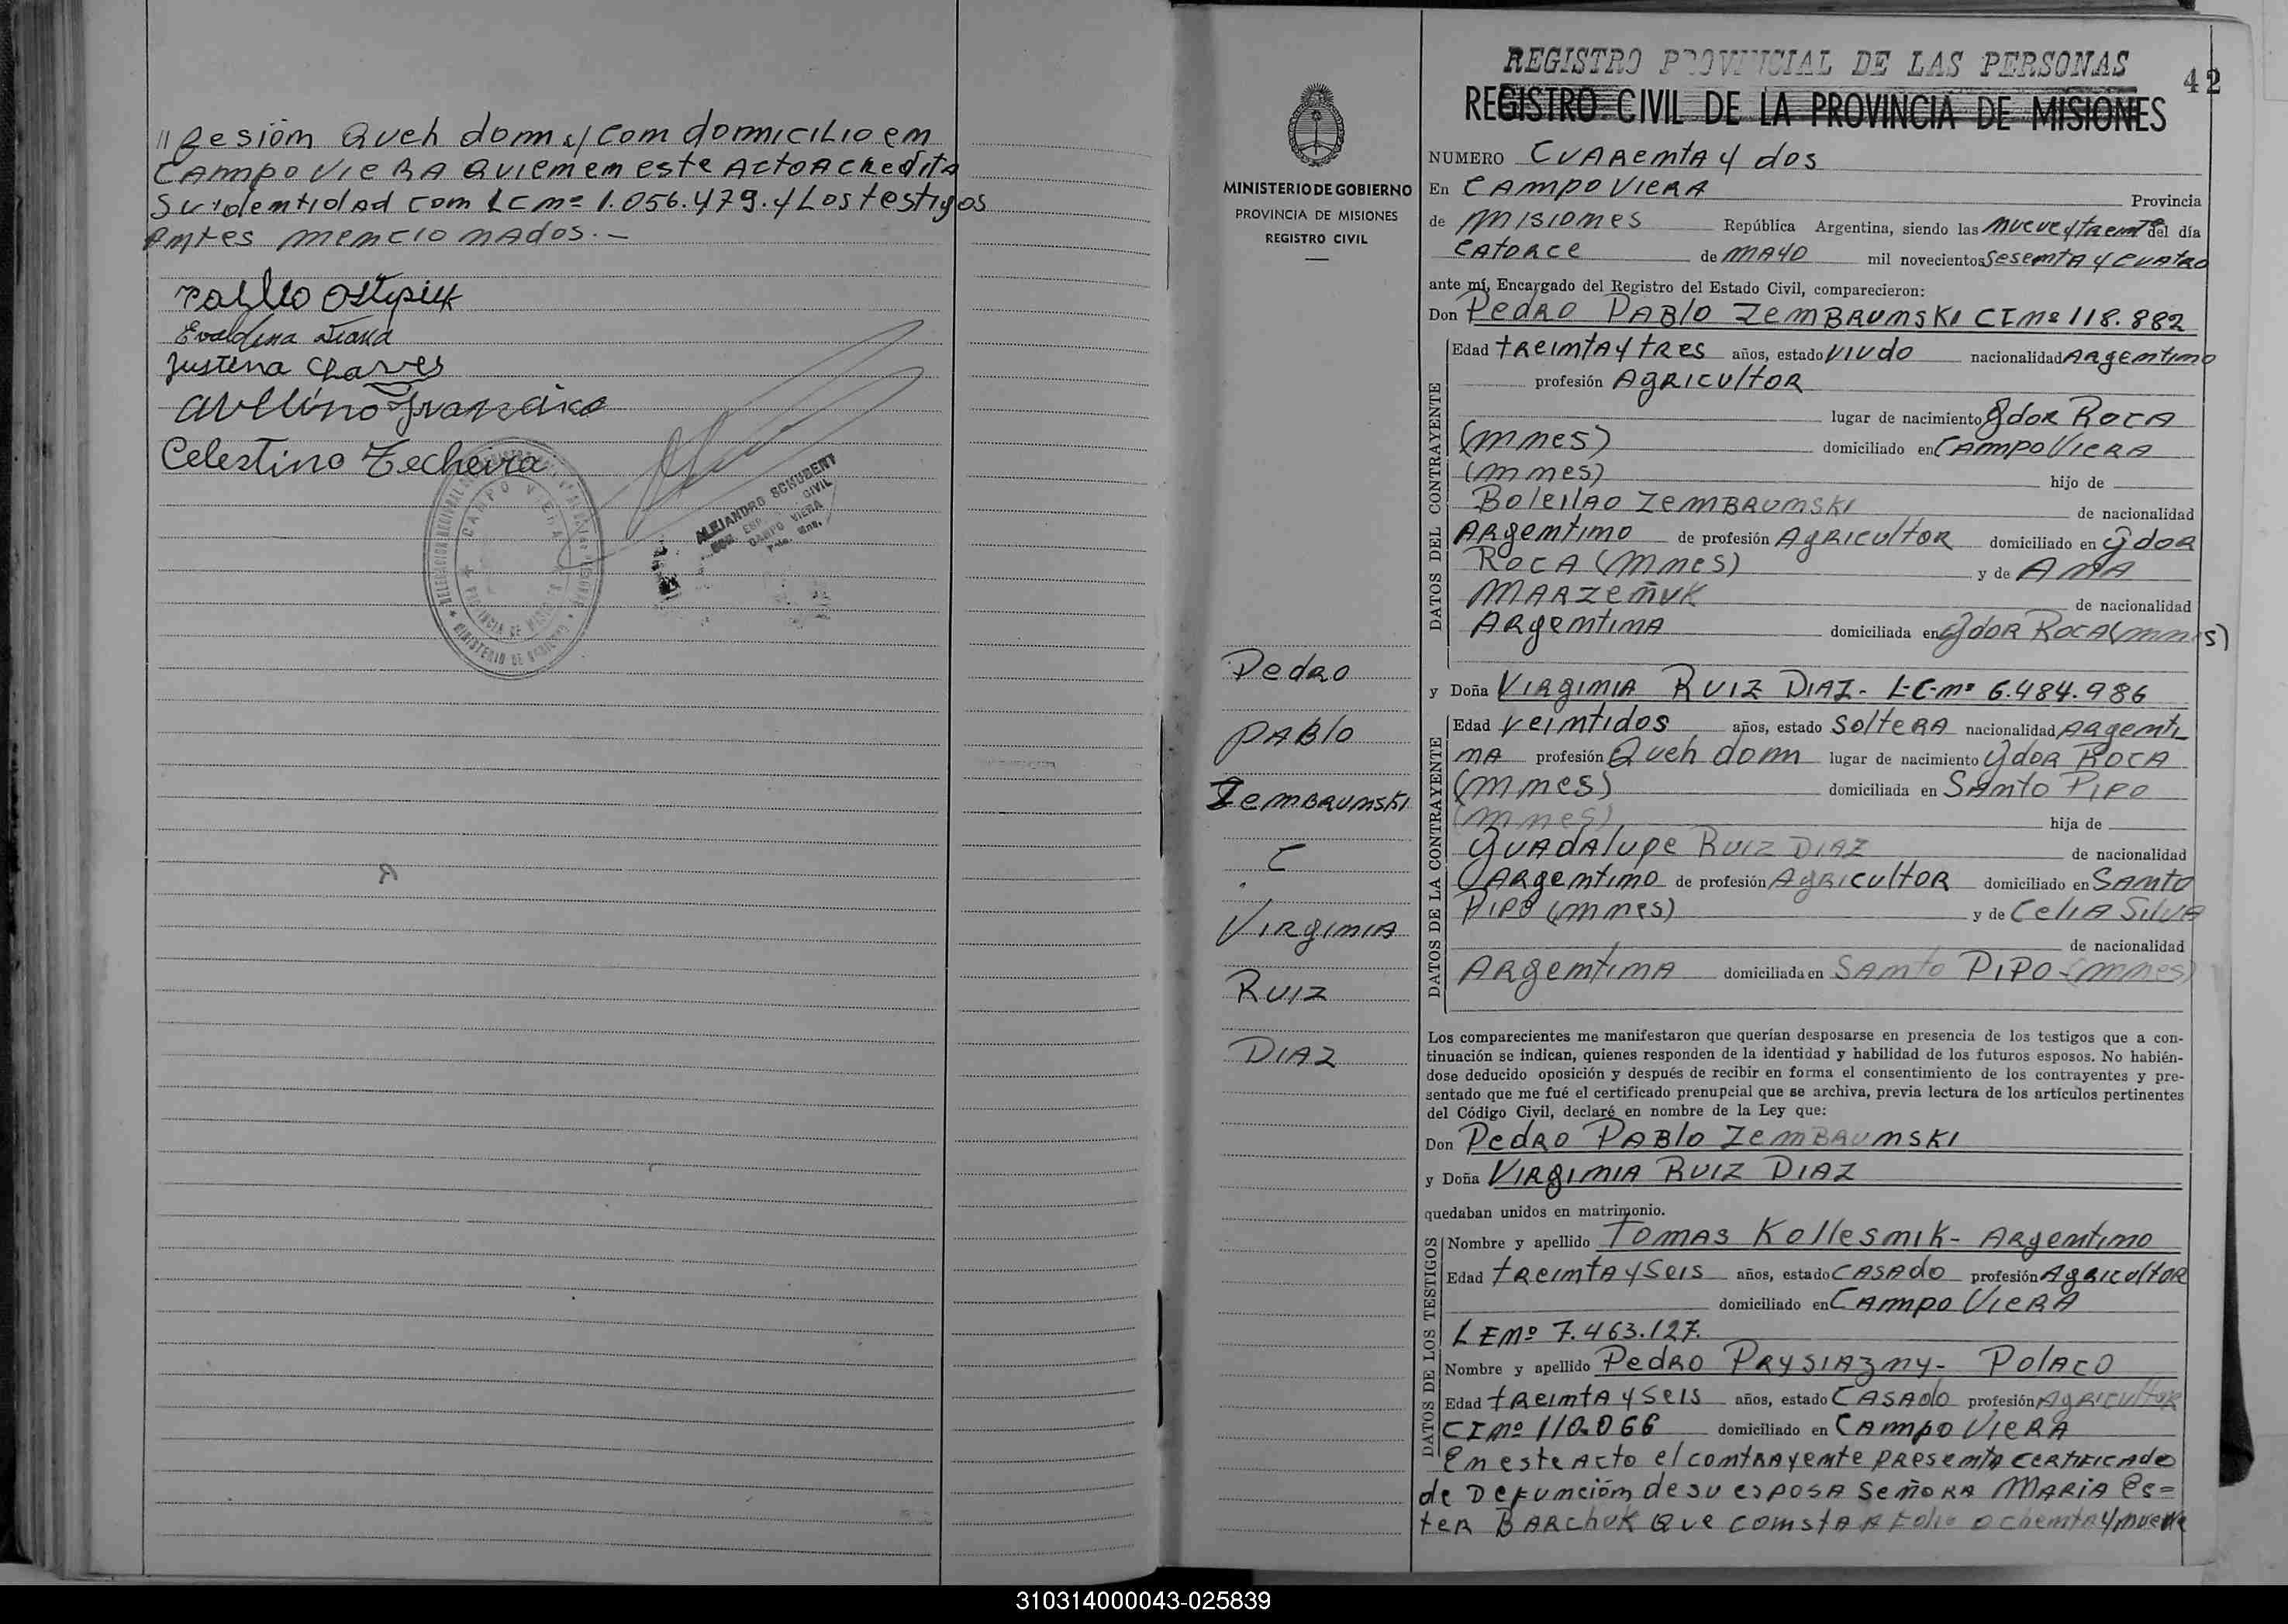 //Fesión Queh domn y/ com domicilio em
CAmpo VieRA Quiem em este Acto Acredita
Su identidad com LC mº 1.056.479. y Los testigos
Antes memcio nados.—
Pabllo Ostepiuk
Justina Chaves
Avellino Francisco
Celestino Techeira
CAMPO VIERA
PROVINCIA DE MISIONES
MINISTERIO DE GOBIERNO
ALEJANDRO SCHUBERT
CIVIL
CAMPO VIERA
Pcia. Mnes.
REGISTRO PROVINCIAL DE LAS PERSONAS
42
REGISTRO CIVIL DE LA PROVINCIA DE MISIONES
MINISTERIO DE GOBIERNO
PROVINCIA DE MISIONES
REGISTRO CIVIL
Pedro
PABlo
ZemBRUMSKI
C
VIRgIMIA
RUIZ
DIAZ
NUMERO CUARemtA y dos
En CAmpo VieRA Provincia
de MISIOMES República Argentina, siendo las Mueve y tReimtA del día
CAtoRce de MAYO mil novecientos SesemtA y cuAtRo
ante mí, Encargado del Registro del Estado Civil, comparecieron:
Don PedRo PABlo ZemBRUMSKI CI Mº 118.882
DATOS DEL CONTRAYENTE
Edad tReimtA y tRes años, estado VIUdo nacionalidad ARgemtimo
profesión AgRICUltOR
lugar de nacimiento GdoR ROCA
(Mmes) domiciliado en CAmpo VieRA
(Mmes) hijo de
BoleilAo ZemBRUMSKI de nacionalidad
ARgemtimo de profesión AgRICUltOR domiciliado en GdoR
ROCA (Mmes) y de AMA
MARZeñUK de nacionalidad
ARgemtimA domiciliada en GdoR ROCA (Mmes)
y Doña VIRgIMIA RUIZ DIAZ- L-C-Mº 6.484.986
DATOS DE LA CONTRAYENTE
Edad Veimtidos años, estado SolteRA nacionalidad ARgemti-
MA profesión Queh domn lugar de nacimiento GdoR ROCA
(Mmes) domiciliada en SAmto PIPO
(Mmes) hija de
GUAdAlupe RUIZ DIAZ de nacionalidad
ARgemtimo de profesión AgRICUltOR domiciliado en SAmto
PIPO (Mmes) y de CelIA SilVA
de nacionalidad
ARgemtimA domiciliada en SAmto PIPO-(Mmes)
Los comparecientes me manifestaron que querían desposarse en presencia de los testigos que a con-
tinuación se indican, quienes responden de la identidad y habilidad de los futuros esposos. No habién-
dose deducido oposición y después de recibir en forma el consentimiento de los contrayentes y pre-
sentado que me fué el certificado prenupcial que se archiva, previa lectura de los artículos pertinentes
del Código Civil, declaré en nombre de la Ley que:
Don PedRo PABlo ZemBRUMSKI
y Doña VIRgIMIA RUIZ DIAZ
quedaban unidos en matrimonio.
DATOS DE LOS TESTIGOS
Nombre y apellido TOMAS KollesMIK- ARgemtimo
Edad tReimtA y SeIS años, estado CASAdo profesión AgRICUltOR
domiciliado en CAmpo VieRA
LE Mº 7.463.127.
Nombre y apellido PedRo PRYSIAZMY- PolACO
Edad tReimtA y SeIS años, estado CASAdo profesión AgRICUltOR
CI Mº 110.066 domiciliado en CAmpo VieRA
En este Acto el comtRAyemte pResemtA ceRtificAdo
de Defumcióm de su esposA SeñoRA MARIA Es=
teR BARChUK que comstA A folio ochemtA y mueve
310314000043-025839